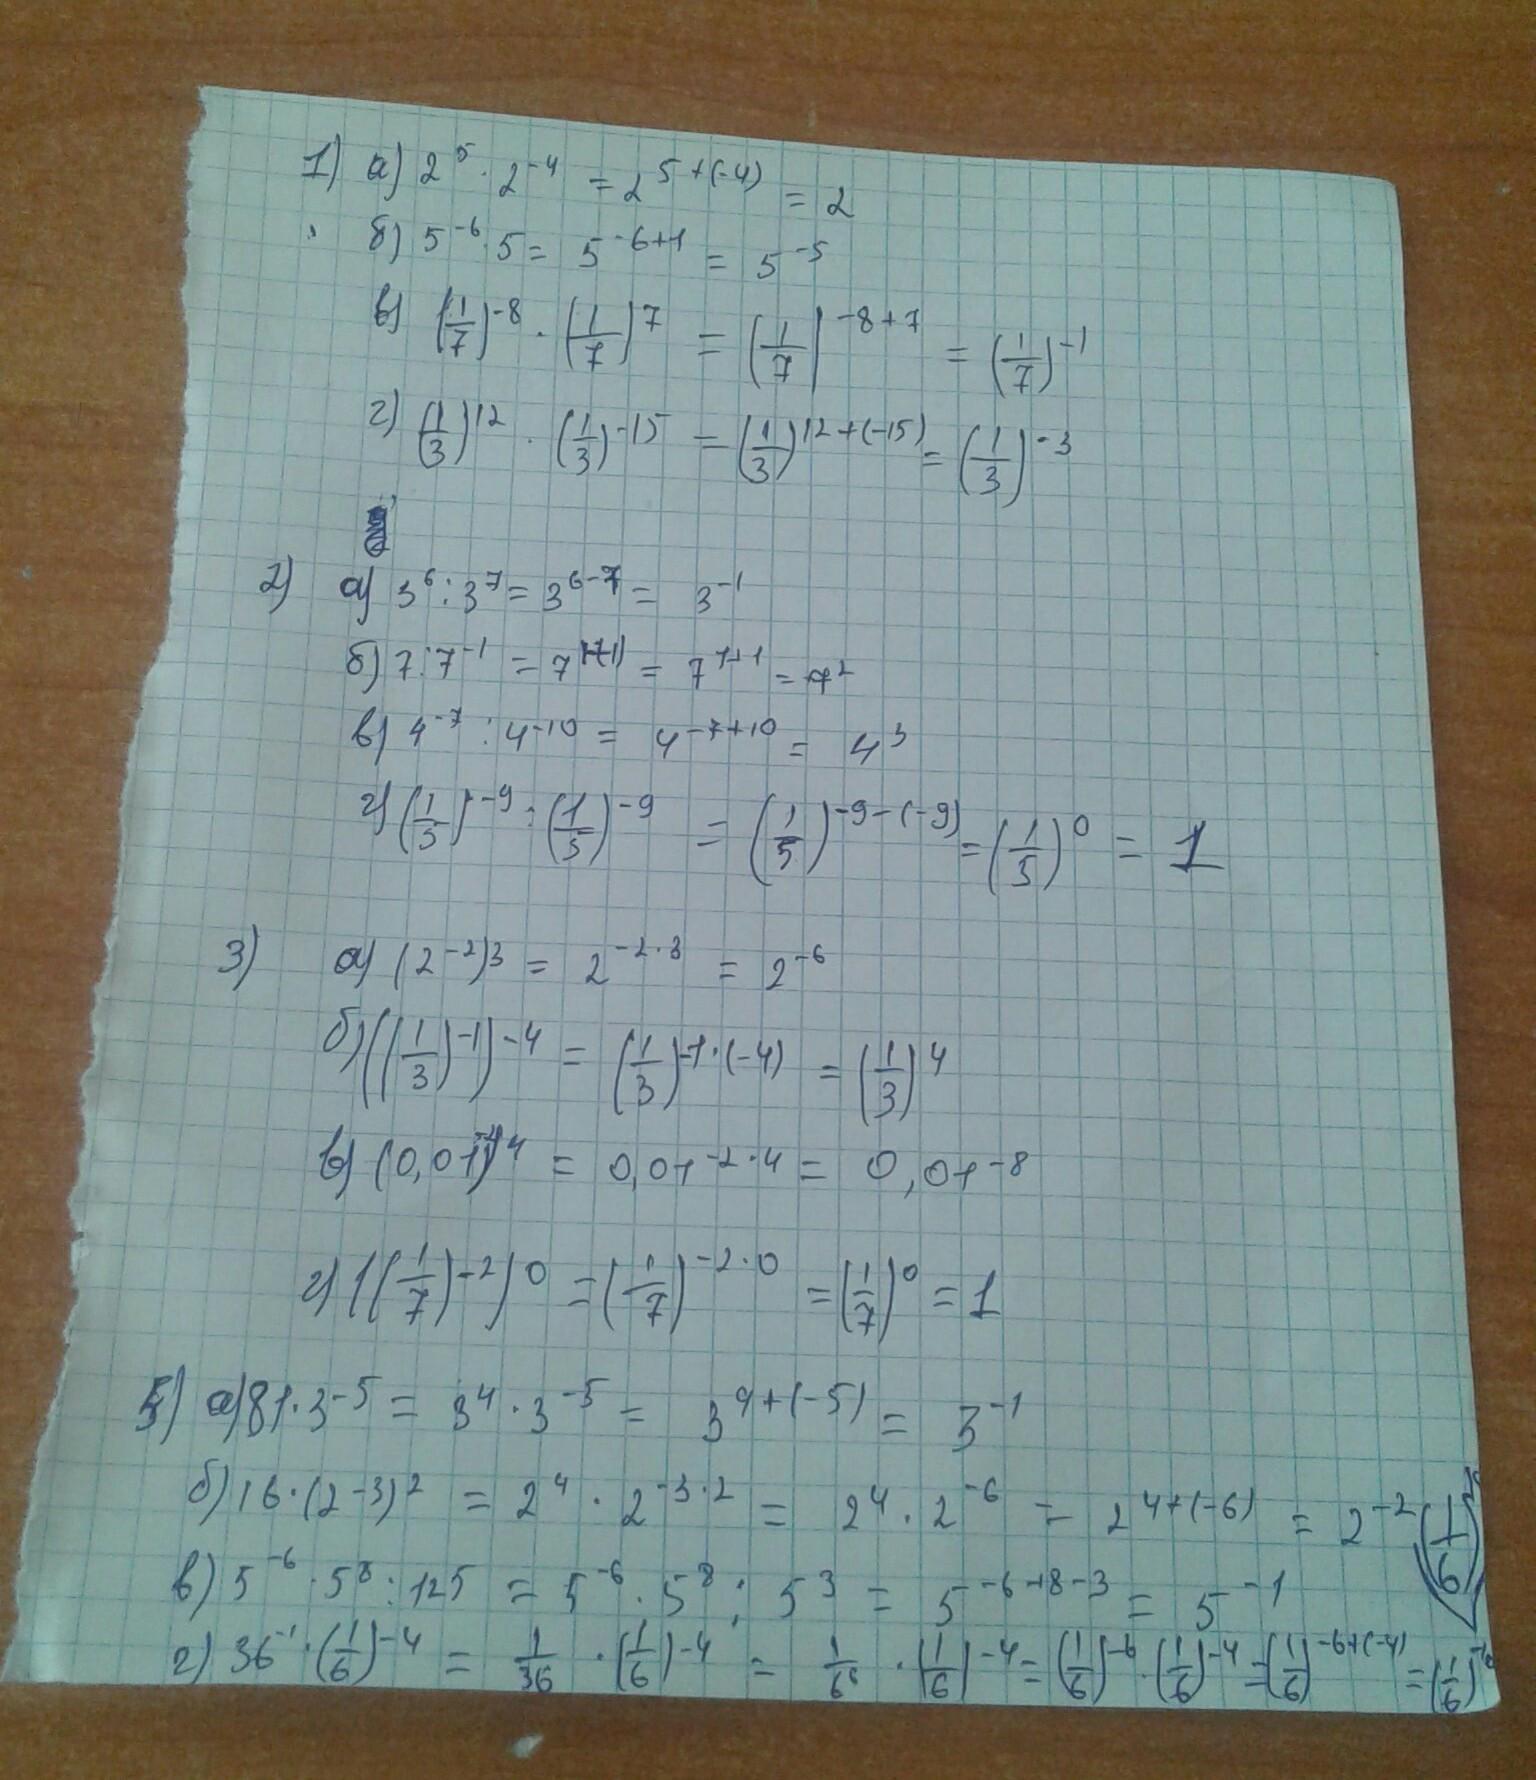 1) а) 2⁵ · 2⁻⁴ = 2⁵⁺⁽⁻⁴⁾ = 2
б) 5⁻⁶ · 5 = 5⁻⁶⁺¹ = 5⁻⁵
в) (1/7)⁻⁸ · (1/7)⁷ = (1/7)⁻⁸⁺⁷ = (1/7)⁻¹
г) (1/3)¹² · (1/3)⁻¹⁵ = (1/3)¹²⁺⁽⁻¹⁵⁾ = (1/3)⁻³
2) а) 3⁶ : 3⁷ = 3⁶⁻⁷ = 3⁻¹
б) 7 : 7⁻¹ = 7¹⁻⁽⁻¹⁾ = 7¹⁺¹ = 7²
в) 4⁻⁷ : 4⁻¹⁰ = 4⁻⁷⁺¹⁰ = 4³
г) (1/5)⁻⁹ : (1/5)⁻⁹ = (1/5)⁻⁹⁻⁽⁻⁹⁾ = (1/5)⁰ = 1
3) а) (2⁻²)³ = 2⁻²·³ = 2⁻⁶
б) ((1/3)⁻¹)⁻⁴ = (1/3)⁻¹·⁽⁻⁴⁾ = (1/3)⁴
в) (0,01⁻²)⁴ = 0,01⁻²·⁴ = 0,01⁻⁸
г) ((1/7)⁻²)⁰ = (1/7)⁻²·⁰ = (1/7)⁰ = 1
5) а) 81 · 3⁻⁵ = 3⁴ · 3⁻⁵ = 3⁴⁺⁽⁻⁵⁾ = 3⁻¹
б) 16 · (2⁻³)² = 2⁴ · 2⁻³·² = 2⁴ · 2⁻⁶ = 2⁴⁺⁽⁻⁶⁾ = 2⁻²
в) 5⁻⁶ · 5⁸ : 125 = 5⁻⁶ · 5⁸ : 5³ = 5⁻⁶⁺⁸⁻³ = 5⁻¹
г) 36⁻¹ · (1/6)⁻⁴ = 1/36 · (1/6)⁻⁴ = 1/6⁶ · (1/6)⁻⁴ = (1/6)⁻⁶ · (1/6)⁻⁴ = (1/6)⁻⁶⁺⁽⁻⁴⁾ = (1/6)⁻¹⁰